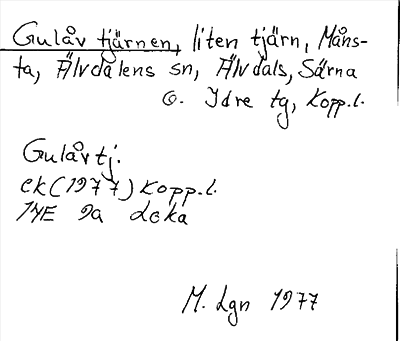 Gulåvtjärnen, liten tjärn, Måns-
ta, Älvdalens sn, Älvdals, Särna
o. Idre tg, Kopp.l.
Gulåvtj.
ek(1977) Kopp.l.
14E 9a Loka
M. Lgn 1977